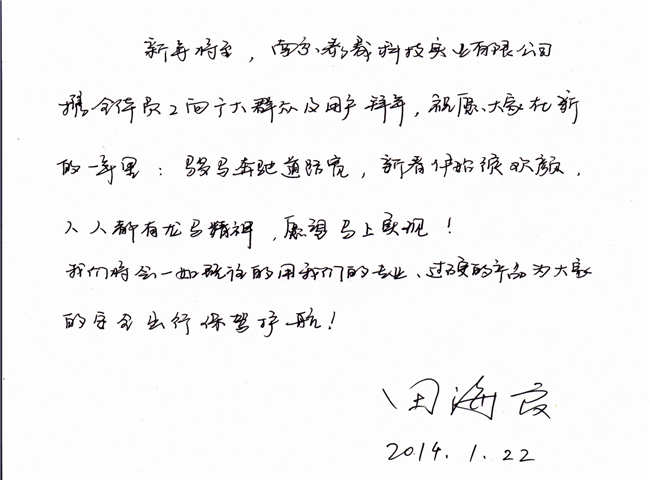 新年将至，南京泰晟科技实业有限公司
携全体员工向广大群众及用户拜年，祝愿大家在新
的一年里：骏马奔驰道路宽，新春伊始绽欢颜，
人人都有龙马精神，愿望马上实现！
我们将会一如既往的用我们的专业、过硬的产品为大家
的安全出行保驾护航！
田海霞
2014.1.22